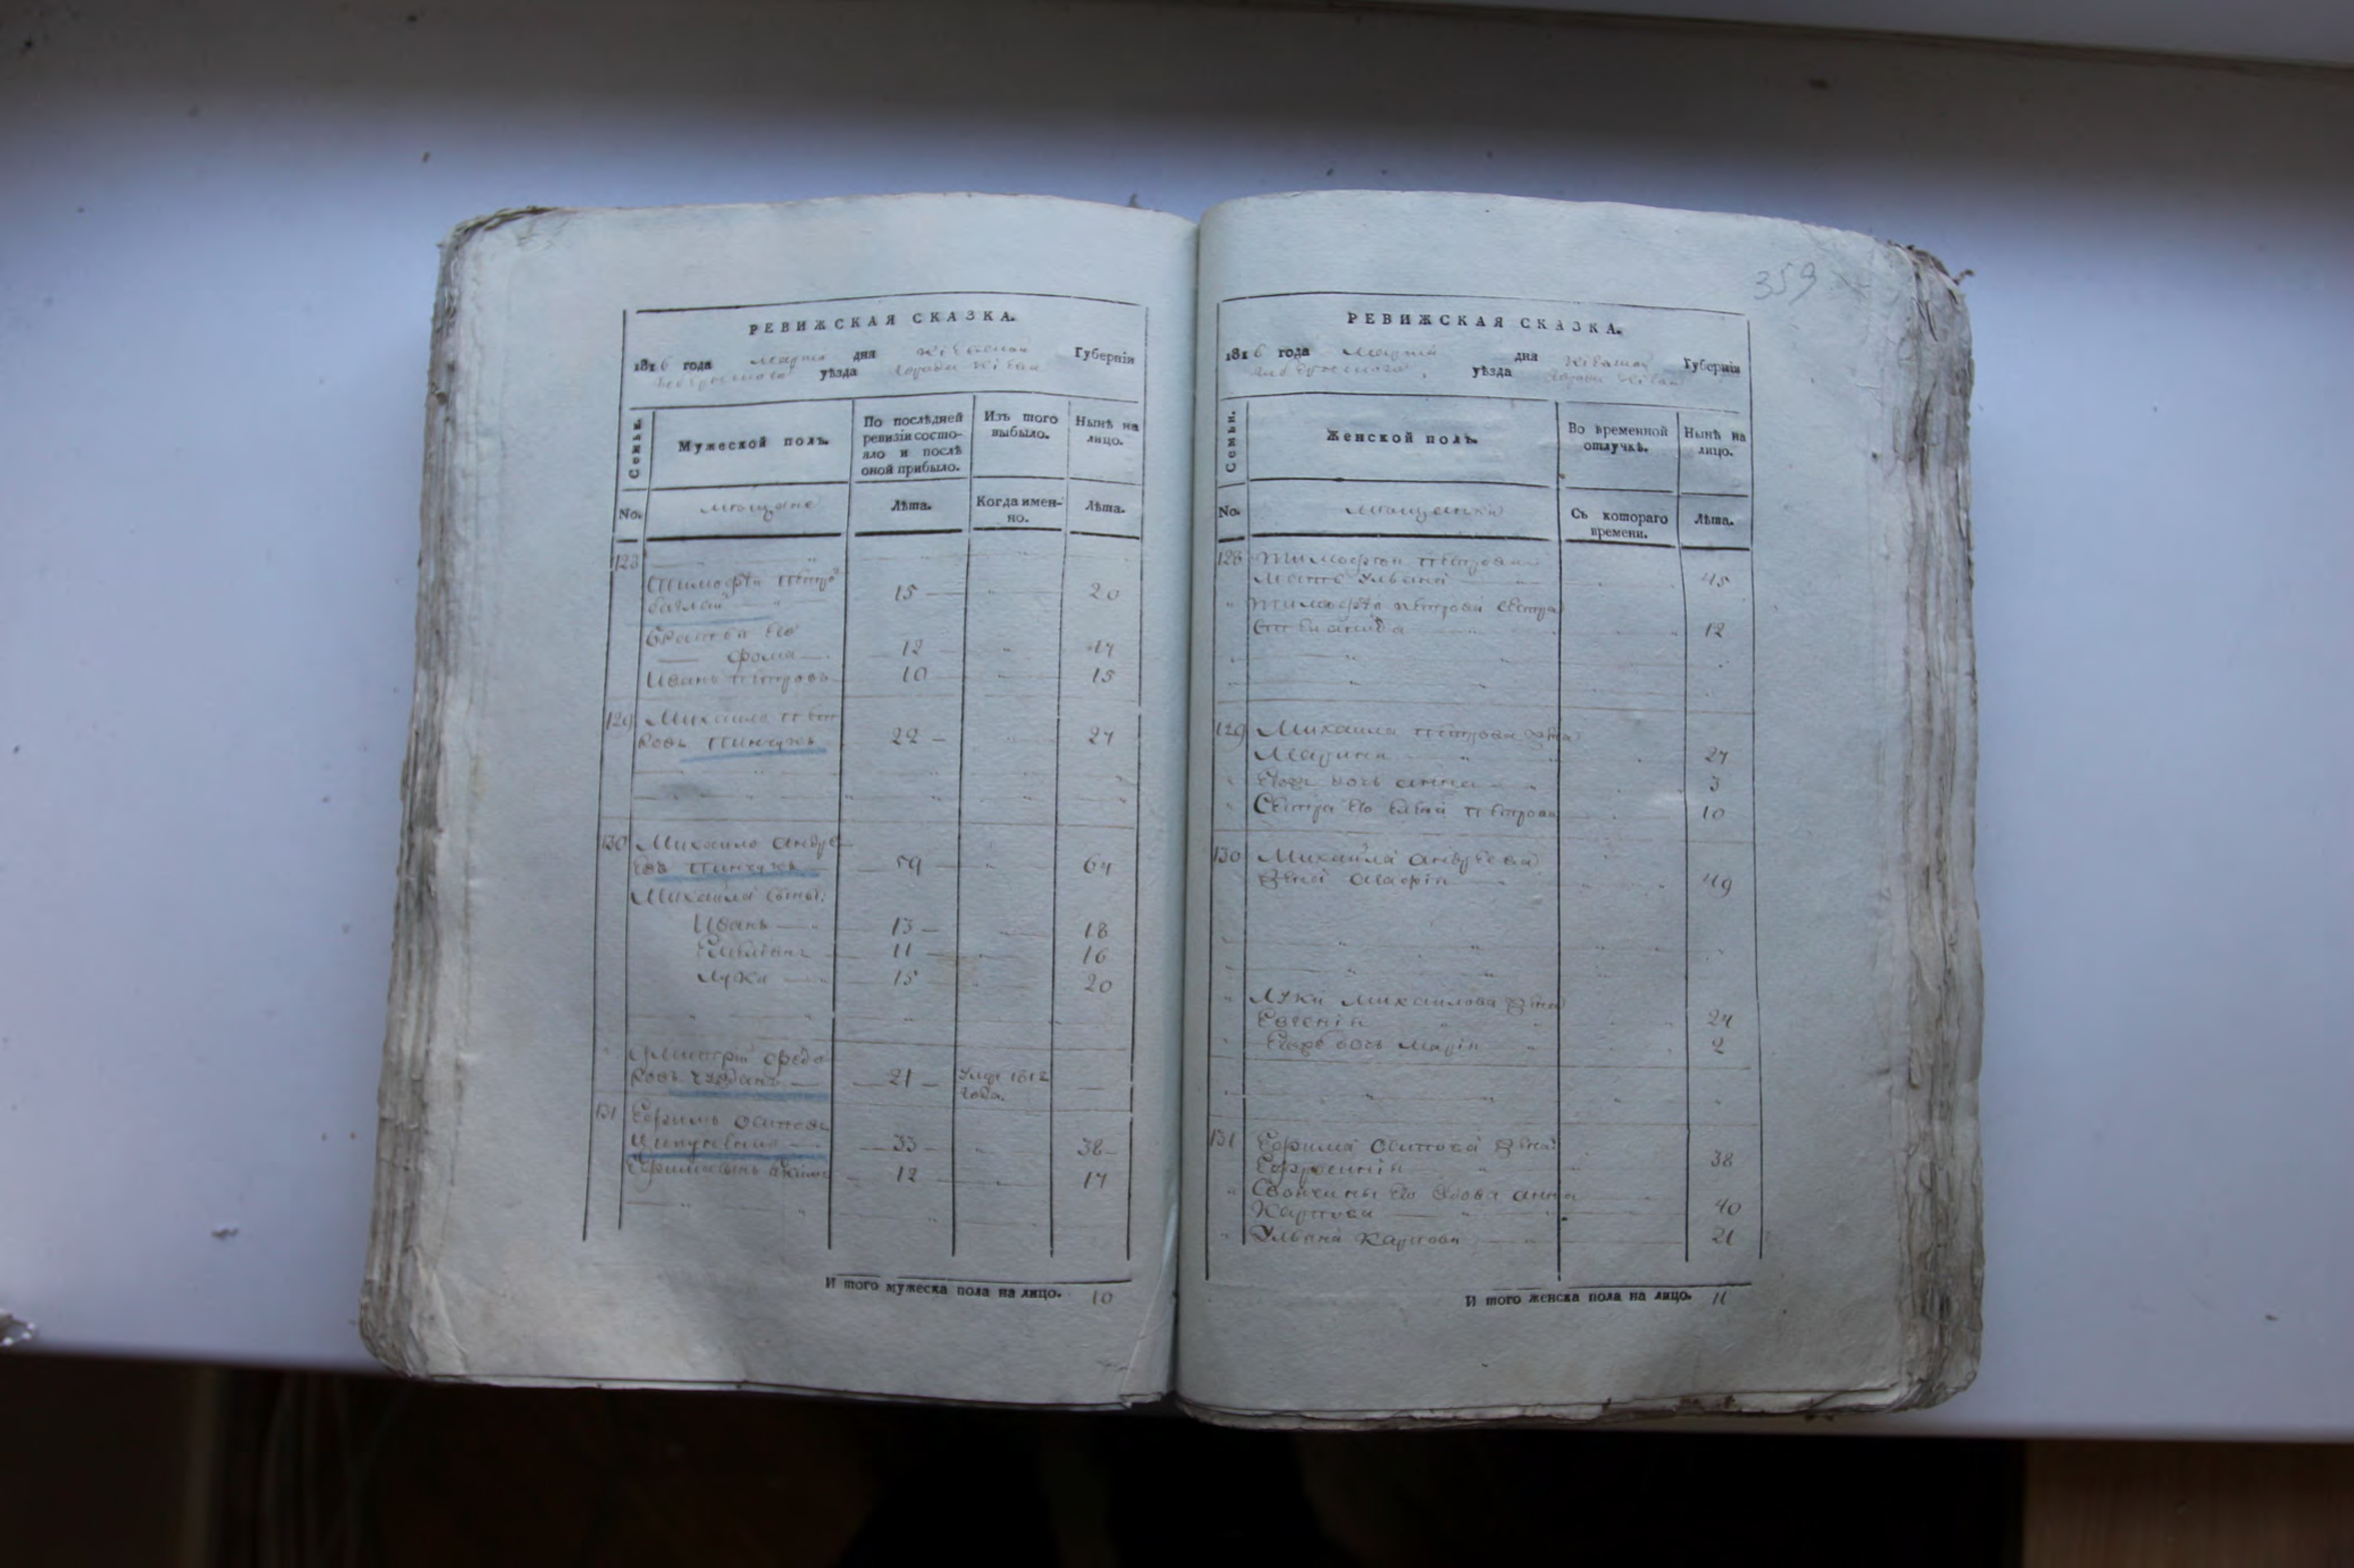 359
РЕВИЖСКАЯ СКАЗКА.
1816 года марта дня Кіевской Губерніи
уѣзда города Кіева
Семьи.
Мужеской полъ.
По послѣдней ревизіи состо-
яло и послѣ
оной прибыло.
Изъ того
выбыло.
Нынѣ на
лицо.
No.
мещане
Лѣта.
Когда имен-
но.
Лѣта.
128
Тимофей Петро
15 20
Братья его
Фома 12 17
Иванъ Петровъ 10 15
129 Михайло Пет
ровъ Пинчукъ 22 27
130 Михайло Андре
евъ Пинчукъ 59 64
Михайла сыны:
Иванъ 13 18
Емельянъ 11 16
Лука 15 20
Дмитрій Федо
ровъ 21 Умре 1812
года.
131 Ефимъ Осиповъ
33 38
Ефима сынъ 12 17
И того мужеска пола на лицо. 10
РЕВИЖСКАЯ СКАЗКА.
1816 года марта дня Кіевской Губерніи
уѣзда города Кіева
Семьи.
Женской полъ.
Во временной
отлучкѣ.
Нынѣ на
лицо.
No.
мещанки
Съ котораго
времени.
Лѣта.
128 Тимофея Петрова
мать Ульяна 45
Тимофея Петрова сестра
12
129 Михайла Петрова жена
Марина 27
дочь Анна 3
Сестра его Елена Петрова 10
130 Михайла Андреева
жена Агафія 49
Луки Михайлова жена
Евгенія 24
дочь Марія 2
131 Ефима Осипова жена
Ефросинія 38
его вдова Анна
Карпова 40
Ульяна Карпова 21
И того женска пола на лицо. 11